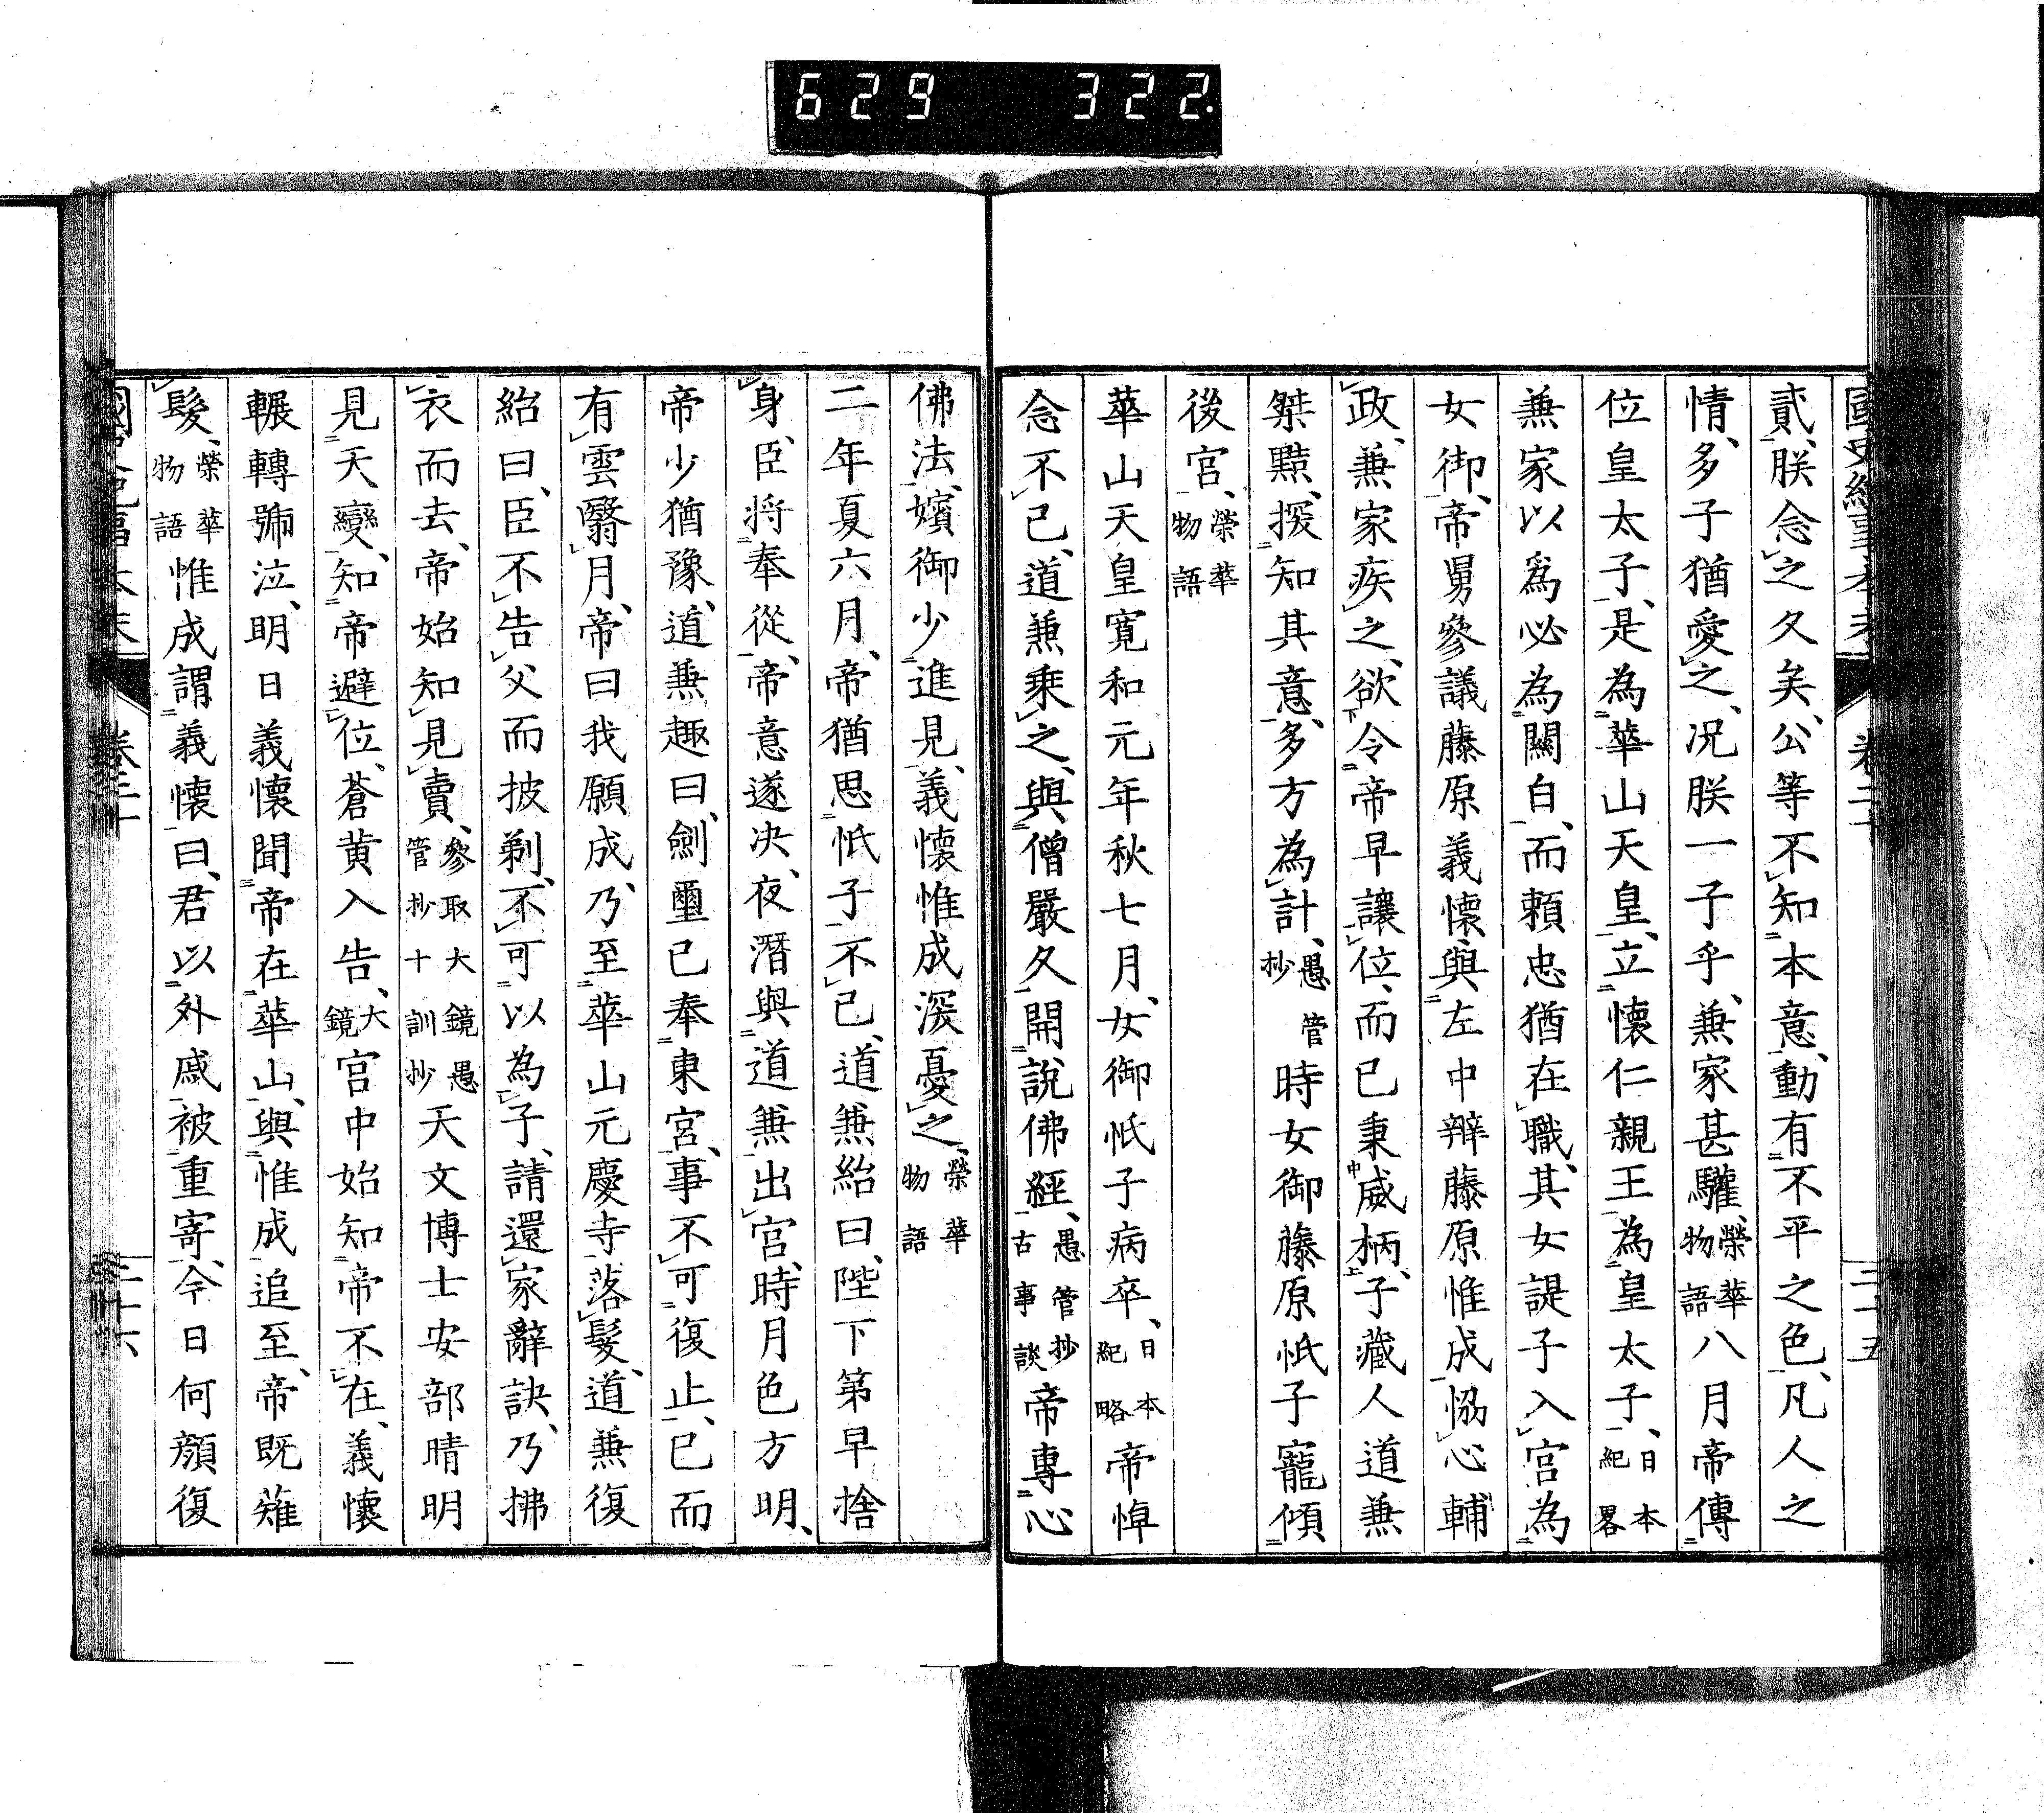 629 322
國史紀事本末 卷二十 二十五
貳、朕念之久矣、公等不知本意、動有不平之色、凡人之
情、多子猶愛之、况朕一子乎、兼家甚驩、榮華物語八月帝傳
位皇太子、是為華山天皇、立懷仁親王為皇太子、日本紀畧
兼家以爲必為關白、而賴忠猶在職、其女諟子入宮為
女御、帝舅參議藤原義懷、與左中辯藤原惟成、恊心輔
政、兼家疾之、欲令帝早讓位、而已秉威柄、子藏人道兼
桀黠、揆知其意、多方為計、愚管抄時女御藤原忯子寵傾
後宮、榮華物語
華山天皇寬和元年秋七月、女御忯子病卒、日本紀略帝悼
念不已、道兼乘之、與僧嚴久開說佛經、愚管抄古事談帝專心
佛法、嬪御少進見、義懷惟成深憂之、榮華物語
二年夏六月、帝猶思忯子不已、道兼紿曰、陛下第早捨
身、臣將奉從、帝意遂决、夜潛與道兼出宮、時月色方明、
帝少猶豫、道兼趣曰、劍璽已奉東宮、事不可復止、已而
有雲翳月、帝曰我願成、乃至華山元慶寺落髮、道兼復
紿曰、臣不告父而披剃、不可以為子、請還家辭訣、乃拂
衣而去、帝始知見賣、參取大鏡愚管抄十訓抄天文博士安部晴明
見天變、知帝避位、蒼黃入告、大鏡宮中始知帝不在、義懷
輾轉號泣、明日義懷聞帝在華山、與惟成追至、帝既薙
髮、榮華物語惟成謂義懷曰、君以外戚被重寄、今日何顏復
國史紀事本末 卷二十 二十六